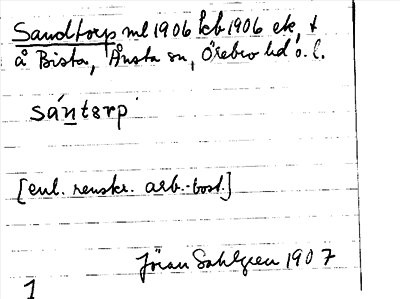 Sandtorp ml 1906 kb 1906 ek, t
å Bista, Ånsta sn, Örebro hd ö. l.
sántɘrp
[enl. renskr. arb.-bost.]
Jöran Sahlgren 1907
1